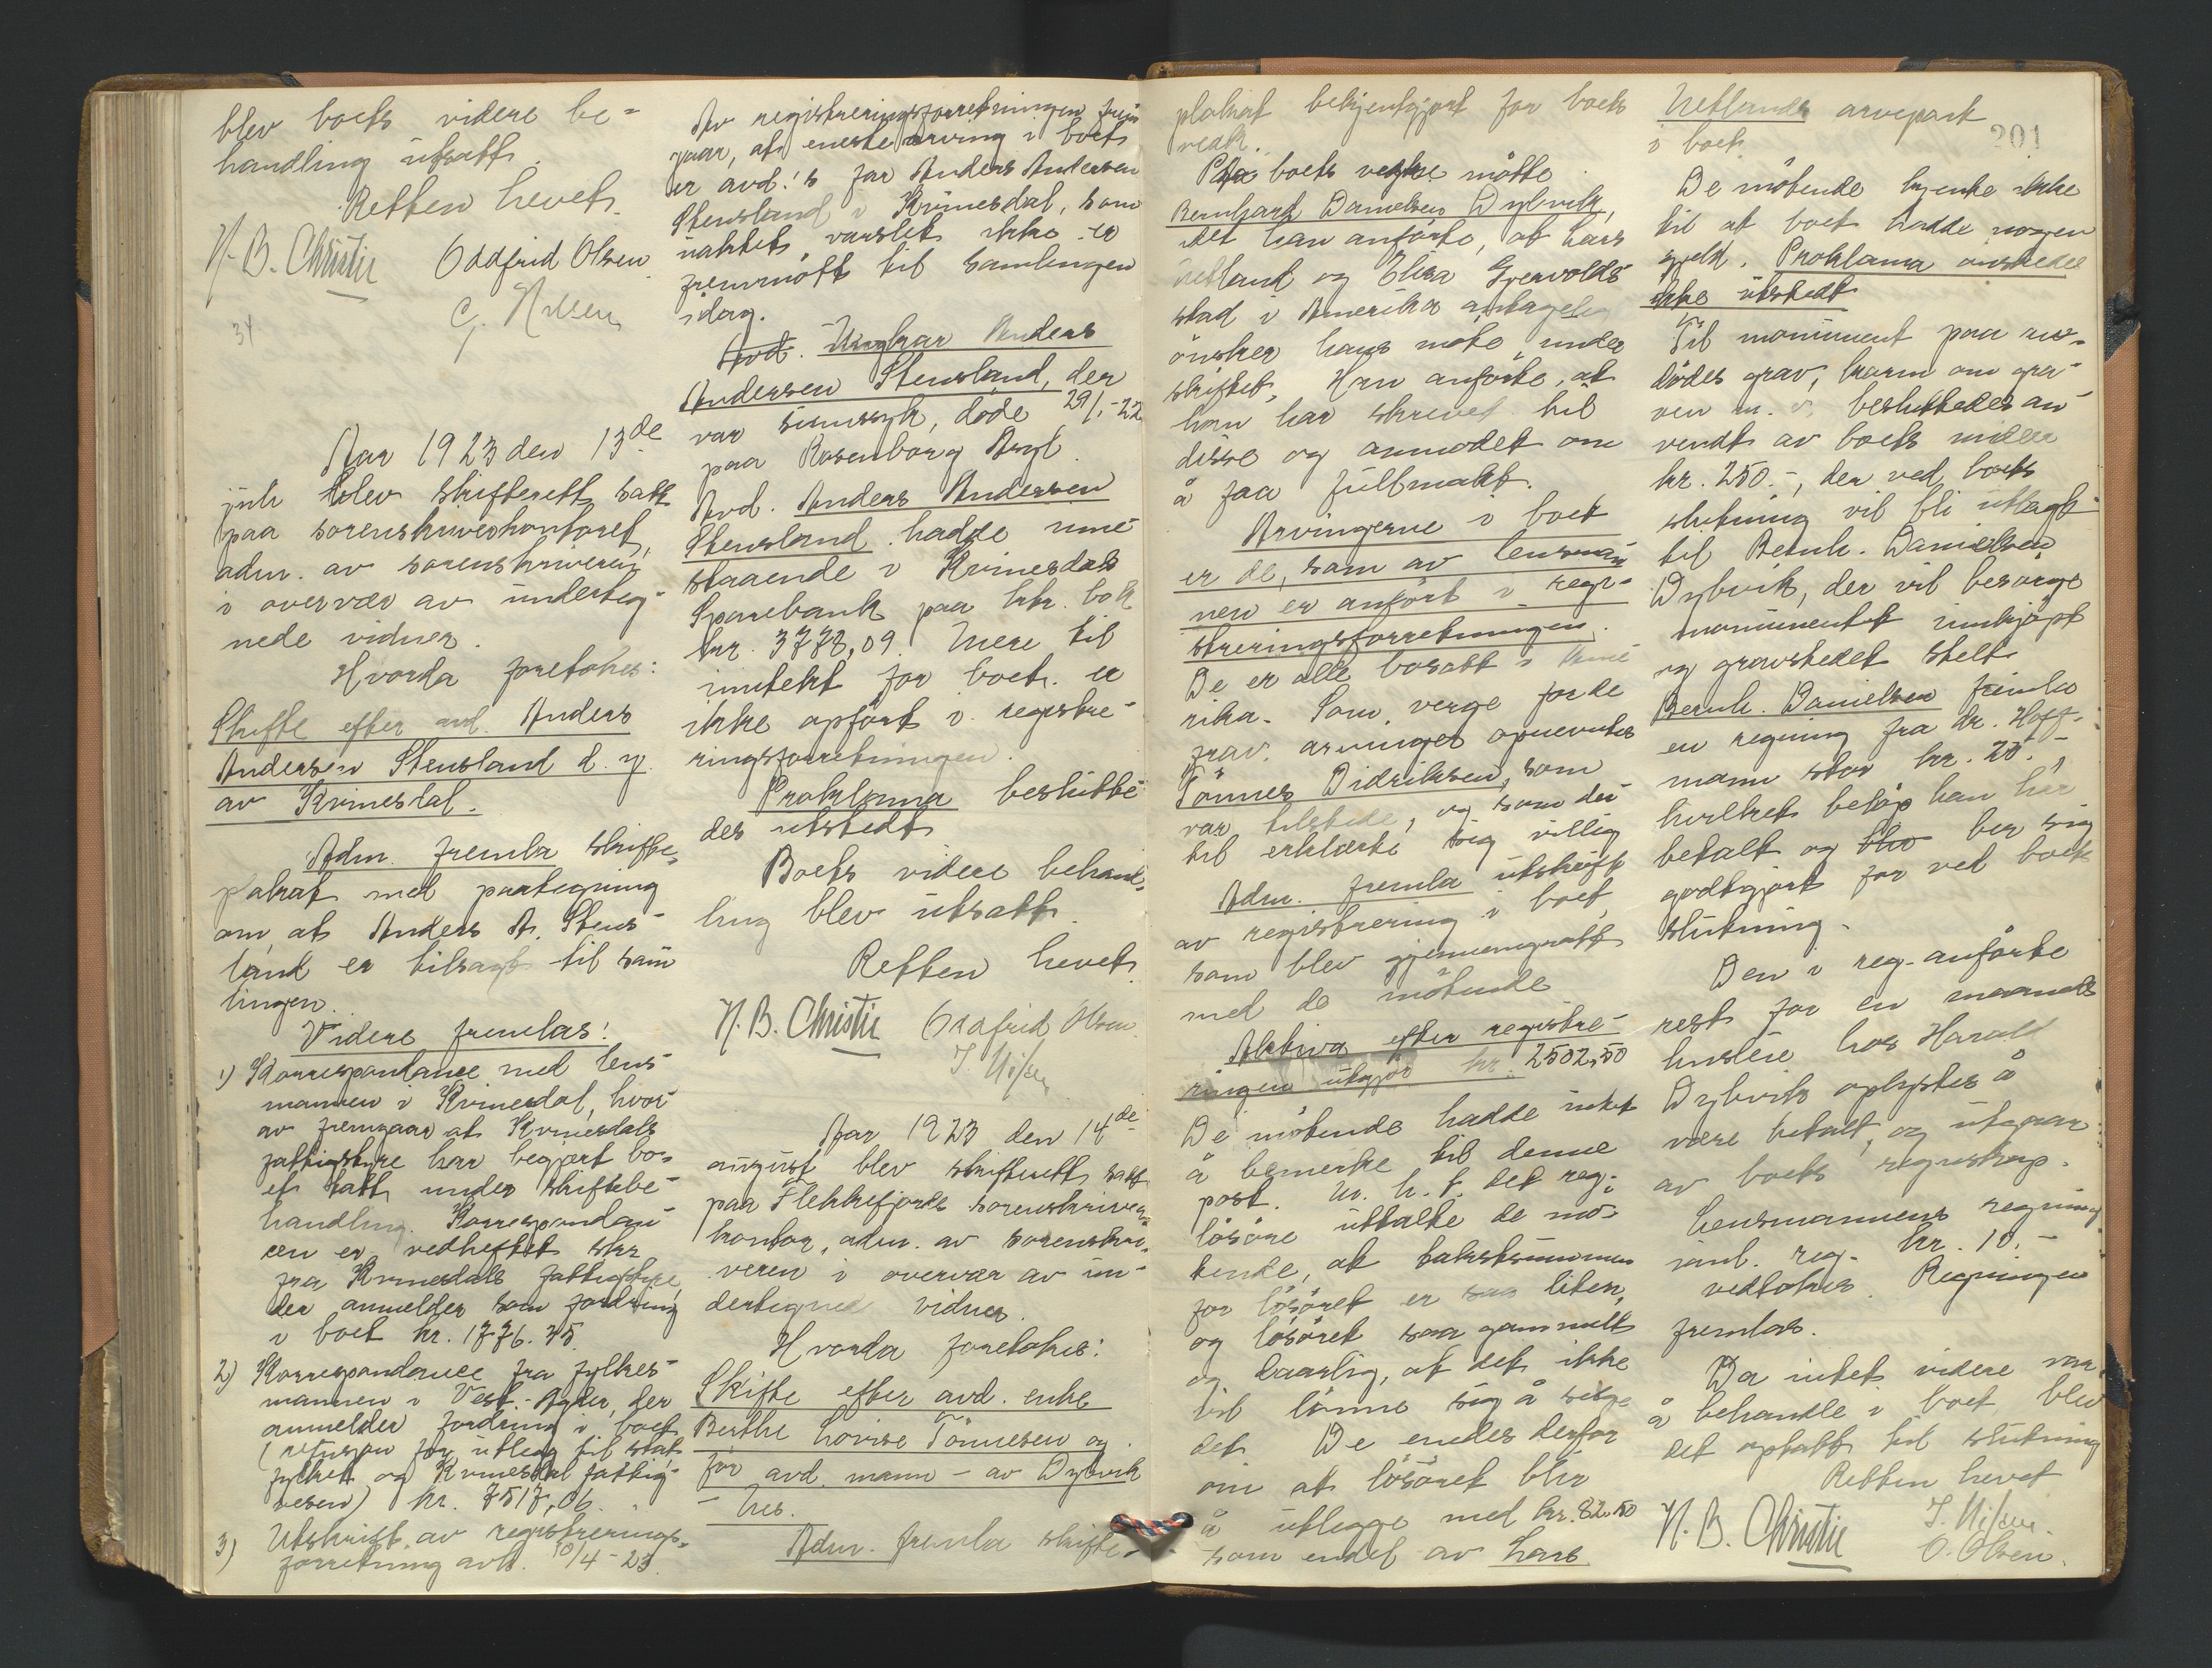 blev boets videre be-
handling utsatt.
Retten hevet.
N. B. Christie Oddfrid Olsen
34
Aar 1923 den 13de
juli blev skifterett satt
paa sorenskriverkontoret,
adm. av sorenskriveren
i overvær av underteg-
nede vidner.
Hvorda foretokes:
Skifte efter avd. Anders
Andersen Stensland d. y.
av Kvinesdal.
Adm. fremla skifte-
plakat med paategning
om at Anders A. Stens-
land er tilsagt til sam
lingen.
Videre fremlas:
1) Korrespondance med lens-
mannen i Kvinesdal, hvor-
av fremgaar at Kvinesdals
fattigstyre har begjært bo-
et tatt under skiftebe-
handling. Korrespondan-
cen er vedheftet skr.
fra Kvinesdals fattigstyre,
der anmelder som fordring
i boet kr. 1776.75.
2) Korrespondance fra fylkes-
mannen i Vest-Agder, der
anmelder fordring i boet
(refusjon for utlegg til stat,
fylket og Kvinesdal fattig-
vesen) kr. 7517,06.
3) Utskrift av registrerings-
forretning avh. 10/4-23.
Av registreringsforretningen frem
gaar, at eneste arving i boet
er avd.'s far Anders Andersen
Stensland i Kvinesdal, som
uaktet varslet ikke er
fremmøtt til samlingen
idag.
Avd. Ungkar Anders
Andersen Stensland, der
var sinnssyk, døde 29/1-22
paa Rosenborg Asyl.
Avd. Anders Andersen
Stensland hadde inne-
staaende i Kvinesdals
Sparebank paa kr. bok
kr. 3772,09. Mere til
inntekt for boet er
ikke opført i registre-
ringsforretningen.
Proklama beslutte-
des utstedt
Boets videre behand-
ling blev utsatt.
Retten hevet.
N. B. Christie Oddfrid Olsen
Aar 1923 den 14de
august blev skifterett satt
paa Flekkefjords sorenskriver-
kontor, adm. av sorenskri-
veren i overvær av un-
dertegnede vidner.
Hvorda foretokes:
Skifte efter avd. enke
Berthe Lovise Tønnesen og
før avd. mann - av Dybvik
- hes.
Adm. fremla skifte-
plakat bekjentgjort for boets
vedk.
Paa boets vegne møtte
Bernhard Danielsen Dybvik,
idet han anførte, at Lars
Netland og Elisa Gjervolds-
stad i Amerika antagelig
ønsker hans møte under
skiftet. Han anførte, at
han har skrevet til
disse og anmodet om
å faa fullmakt.
Arvingerne i boet
er de, som av lensman
nen er anført i regi-
streringsforretningen.
De er alle bosatt i Ame
rika. Som verge for de
frav. arvinger opnevntes
Tönnes Didriksen, som
var tilstede, og som der-
til erklærte sig villig
Adm. fremla utskrift
av registrering i boet,
som blev gjennemgaatt
med de møtende
Aktiva efter registre-
ringen utgjør kr. 2502,50
De møtende hadde intet
å bemerke til denne
post. M. h. t. det reg.
løsøre uttalte de mø-
tende, at takstsummen
for løsøret er saa liten,
og løsøret saa gammelt
og daarlig, at det ikke
vil lønne sig å selge
det. De enedes derfor
om at løsøret blir
å utlegge med kr. 82.50
som endel av Lars
Netlands arvepart
i boet.
201
De møtende kjente ikke
til at boet hadde nogen
gjeld. Proklama ønskedes
ikke utstedt
Til monument paa av-
dødes grav, karm om gra-
ven m. v. besluttedes an-
vendt av boets midler
kr. 250.-, der ved boets
slutning vil bli utlagt
til Bernh. Danielsen
Dybvik, der vil besørge
monumentet innkjøpt
og gravstedet stelt
Bernh. Danielsen fremla
en regning fra dr. Hoff-
mann stor kr. 20.-,
hvilket beløp han har
betalt og blev ber sig
godtgjort for ved boets
slutning.
Den i reg. anførte
rest for en maaneds
husleie hos Harald
Dybvik oplystes å
være betalt, og utgaar
av boets regnskap.
Lensmannens regning
innt. reg. kr. 10.-
vedtokes. Regningen
fremlas.
Da intet videre var
å behandle i boet, blev
det optatt til slutning
Retten hevet
N. B. Christie
O. Olsen.